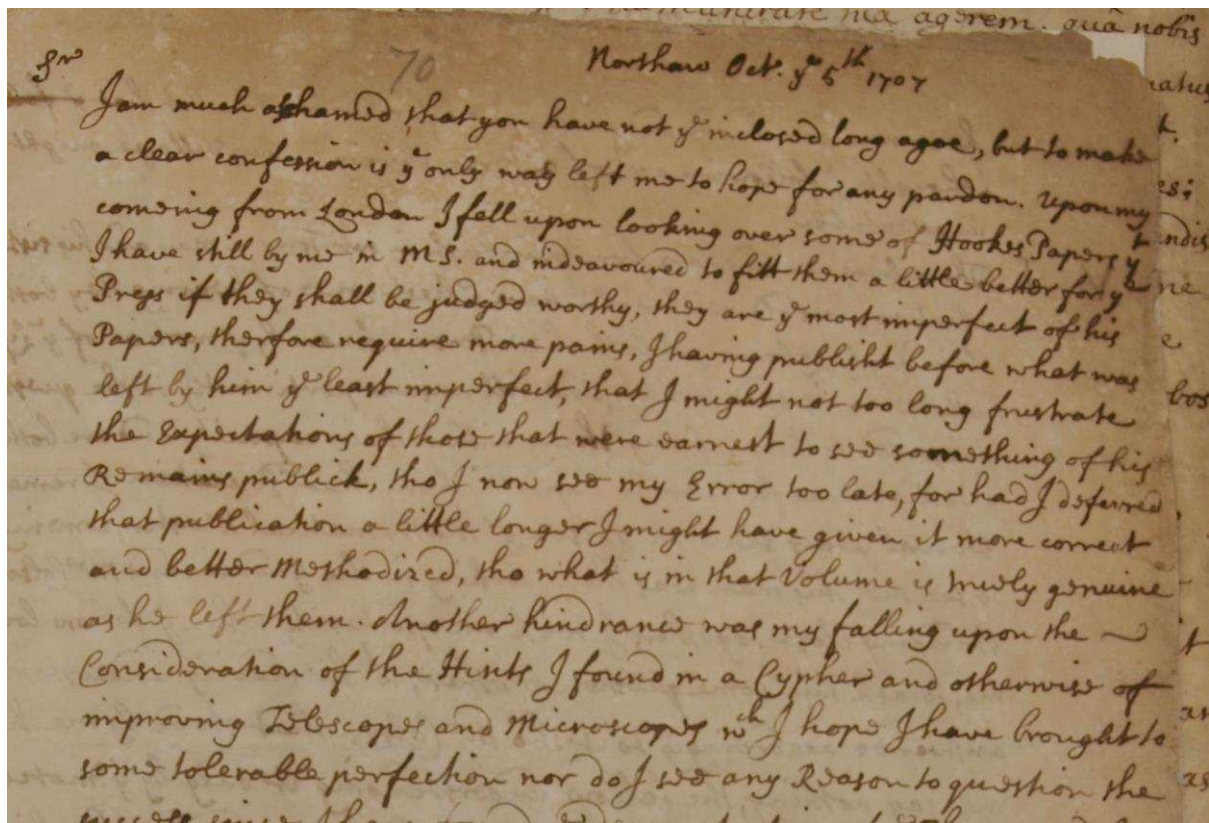 munitate mea agerem. quâ nobis
70
Northaw Oct. yᵉ 5ᵗʰ 1707
Sʳ
I am much ashamed that you have not yᵉ inclosed long agoe, but to make
a clear confession is yᵉ only way left me to hope for any pardon. Upon my
comeing from London I fell upon looking over some of Hookes Papers yᵗ
I have still by me in MS. and indeavoured to fitt them a little better for yᵉ
Press if they shall be judged worthy, they are yᵉ most imperfect of his
Papers, therfore require more pains, I having publisht before what was
left by him yᵉ least imperfect, that I might not too long frustrate
the Expectations of those that were earnest to see something of his
Remains publick, tho I now see my Error too late, for had I deferred
that publication a little longer I might have given it more correct
and better Methodized, tho what is in that Volume is truely genuine
as he left them. Another hindrance was my falling upon the
Consideration of the Hints I found in a Cypher and otherwise of
improving Telescopes and Microscopes wᶜʰ I hope I have brought to
some tolerable perfection nor do I see any Reason to question the